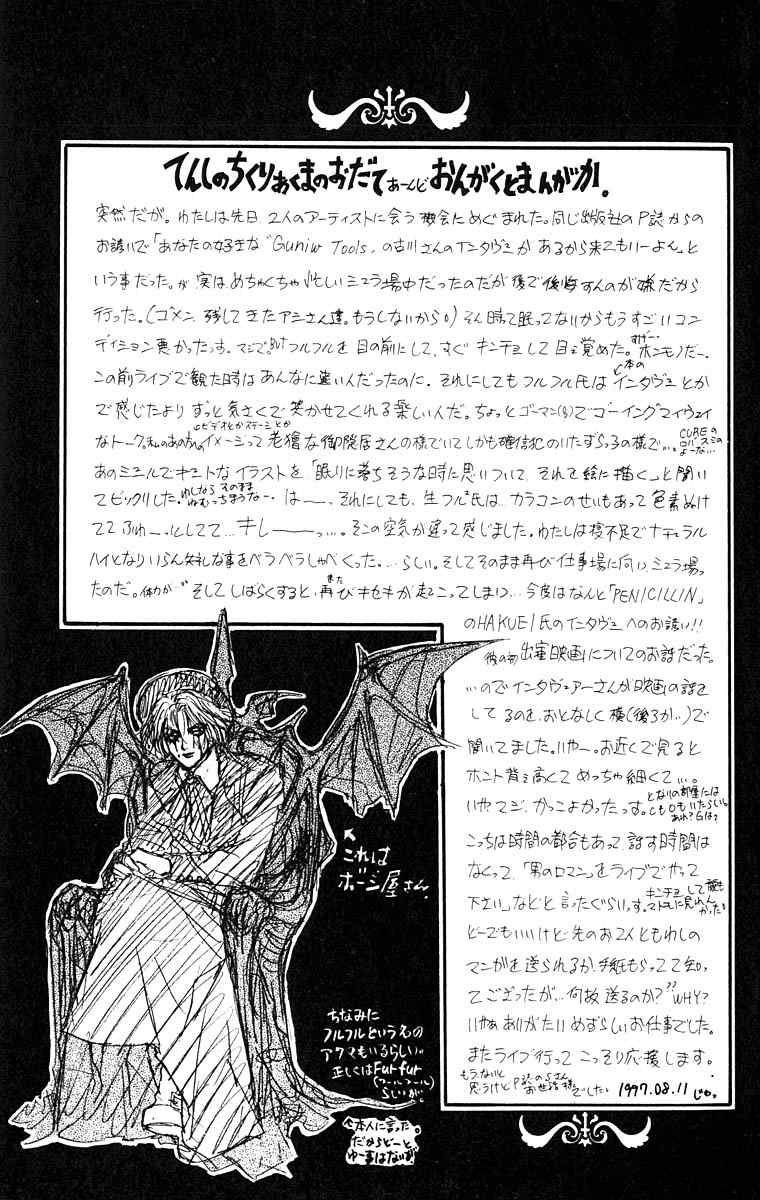 てんしのちくりあくまのおだてあーんどおんがくとまんがか。
突然だが。わたしは先日、2人のアーティストに会う機会にめぐまれた。同じ出版社のP誌からの
お誘いで「あなたの好きな"Guniw Tools"の古川さんのインタヴュがあるから来てもいーよん」と
いう事だった。が実はめちゃくちゃ忙しい シュラ場中だったのだが後で後悔すんのが嫌だから
行った。(ゴメン、残してきたアシさん達。もうしないから。)そん時って眠ってないからもうすごいコン
ディション悪かったっす。マジで。but フルフルを目の前にして、すぐキンチョして目ェ覚めた。すげーホンモノだー。
この前ライブで観た時はあんなに遠い人だったのに。それにしてもフルフル氏は本のインタヴュとか
ビデオとかステージとか
で感じたよりずっと気さくで笑かせてくれる楽しい人だ。ちょっとゴーマン(る)でゴーイングマイウェイ
なトーク。私のあの方のイメージって老獪な御隠居さんの様でいてしかも確信犯のいたずらっ子の様で…。CUREのロバ・スミスのよーな…
あのシュールでキュートなイラストを「眠りに落ちそうな時に思いついて、それを絵に描く。」と聞い
てビックリした。わしならそのままねむっちまうなー。はー、それにしても、生フルフル氏は、カラコンのせいもあって色素ぬけ
ててふゅーっとしてて…キレーーっ…。そこの空気が違って感じました。わたしは寝不足でナチュラル
ハイとなりいらん失礼な事をベラベラしゃべくった。…らしい。そしてそのまま再び仕事場に向い、シュラ場っ
たのだ。体力が…そしてしばらくすると、再びキセキが起こってしまい…今度はなんと「PENICILLIN」
のHAKUEI氏のインタヴュへのお誘い!!
彼の初出演映画についてのお話だった。
…のでインタヴュアーさんが映画の話を
してるのを、おとなしく横(後ろか…)で
聞いてました。いやー。お近くで見ると
ホント背ェ高くてめっちゃ細くて…。
いやマジ、かっこよかったっす。となりの部屋にはCもOもいたらしい。あれ?Gは?
こっちは時間の都合もあって、話す時間は
なくって、「男のロマン」をライブでやって
下さい」などと言ったぐらいっす。キンチョして顔もマトモに見れんかった。
どーでもいいけど先のお2人ともわしの
マンガを送られるか、手紙もらってて知っ
てござったが…何故送るのか?？？WHY?
いやぁありがたい めずらしいお仕事でした。
またライブ行ってこっそり応援します。
もうないと思うけどP誌のSさんお世話様でした。1997.08.11 じゅ。
↖これはボージ屋さん。
ちなみに
フルフルというもの
アクマもいるらしい"
正しくはFurfur
(フールフール)
らしいが。
↖本人に言った。
だからどーと
ゆー事はないが